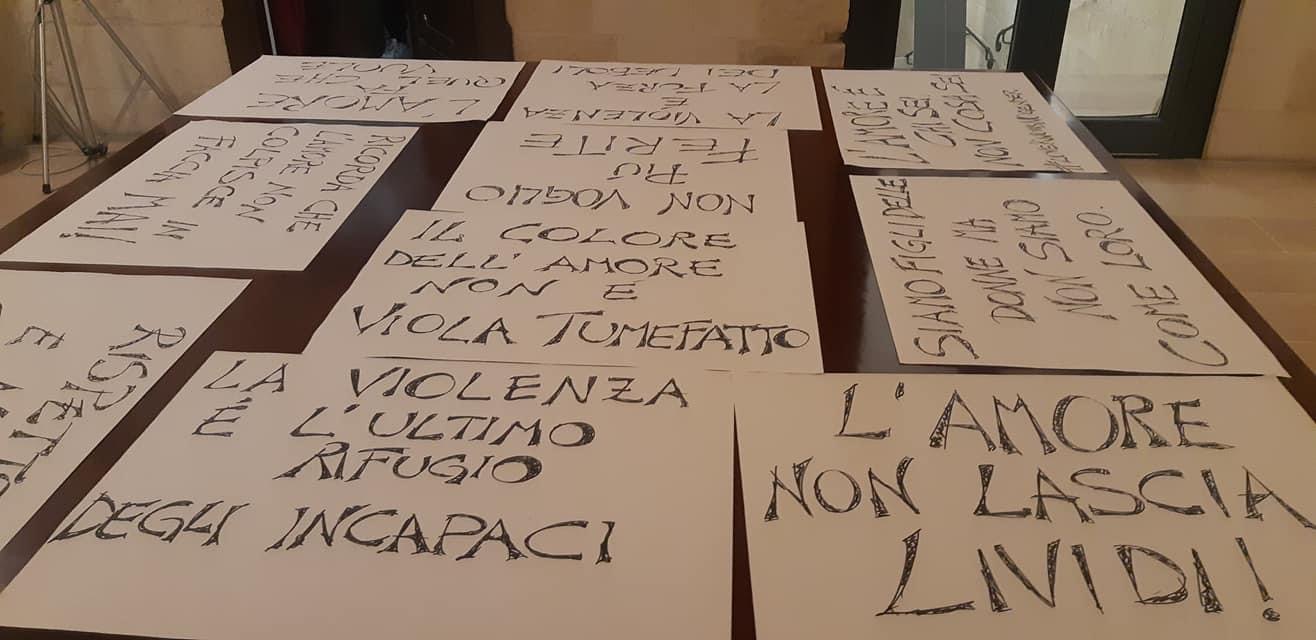 L'AMORE
FA
QUEL CHE
VUOLE
LA VIOLENZA
E
LA FORZA
DEI DEBOLI
L'AMORE È
CHI SEI.
NON COSA SEI
RICORDA CHE
L'AMORE NON
COLPISCE IN
FACCIA MAI!
NON VOGLIO
PIÙ
FERITE
SIAMO FIGLI DELLE
DONNE MA
NON SIAMO
COME LORO.
IL COLORE
DELL'AMORE
NON E
VIOLA TUMEFATTO
RISPETTO
E
LA VIOLENZA
É L'ULTIMO
RIFUGIO
DEGLI INCAPACI
L'AMORE
NON LASCIA
LIVIDI!